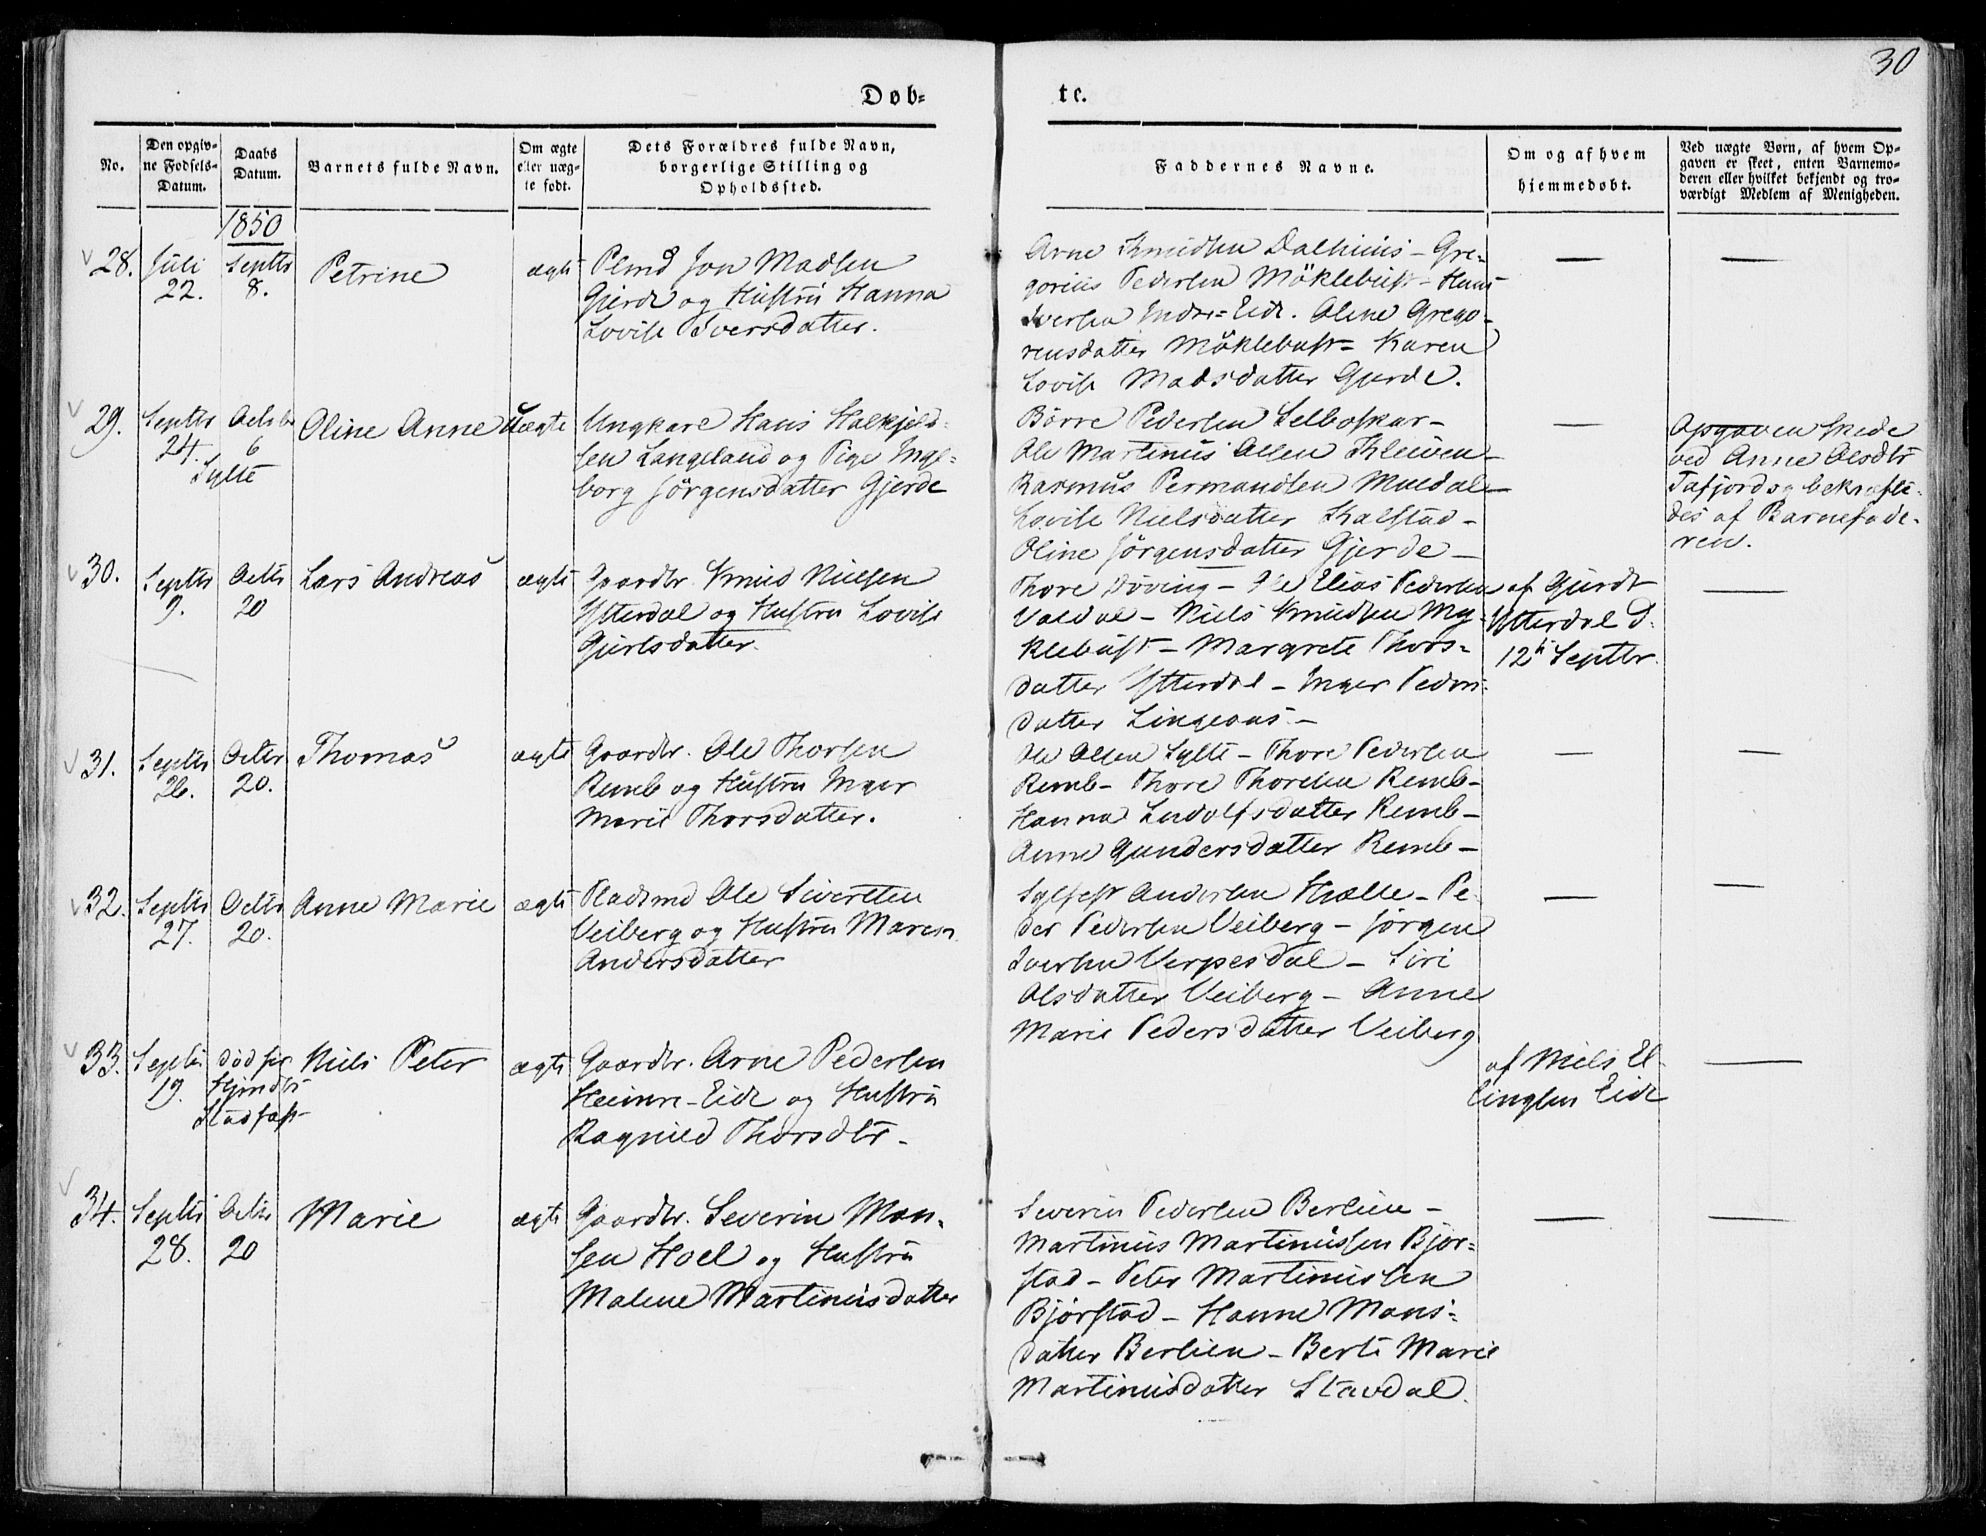 30
Døb-
te.
No.
Den opgiv-
ne Fødsels-
Datum.
Daabs
Datum.
Barnets fulde Navn.
Om ægte
eller uæg-
te født.
Dets Forældres fulde Navn,
borgerlige Stilling og
Opholdssted.
Faddernes Navne.
Om og af hvem
hjemmedøbt.
Ved uægte Børn, af hvem Op-
gaven er skeet, enten Barnemo-
deren eller hvilket bekjendt og tro-
værdigt Medlem af Menigheden.
1850
28.
Juli
22.
Septbr
8.
Petrine
ægte
Plmd Jon Madsen
Gjerde og Hustru Hanna
Lovise Iversdatter.
Arne Knudsen Dalhuus - Gre-
gorius Pedersen Möklebust - Hans
Iversen Indre-Eide. Oline Grego-
rensdatter Möklebust - Karen
Lovise Madsdatter Gjerde.
—
—
29.
Septbr
24.
Sylte
Octbr
6
Oline Anne
Uægte
Ungkarl Hans Halkjelds-
sen Langeland og Pige Inge-
borg Jörgensdatter Gjerde
Börre Pedersen Selboskar -
Ole Martinus Olsen Kleiven -
Rasmus Permandsen Muldal -
Lovise Nielsdatter Kalstad -
Oline Jörgensdatter Gjerde -
—
Opgaven skede
ved Anne Olsdtr
Tafjord og bekræfte-
des af Barnefade-
ren.
30.
Septbr
9.
Octbr
20
Lars Andreas
ægte
Gaardbr. Knud Nielsen
Ytterdal og Hustru Lovise
Gjertsdatter.
Thore Döving - Ole Elias Pedersen
Valdal - Niels Knudsen My-
klebust - Margrete Thors-
datter Ytterdal - Inger Peders-
datter Lingeaas -
af Gjerdt
Ytterdal d.
12te Septbr.
—
31.
Septbr
26.
Octbr
20.
Thomas
ægte
Gaardbr. Ole Thorsen
Remb og Hustru Inger
Marie Thorsdatter.
Ole Olsen Sylte - Thore Pedersen
Remb - Thore Thoresen Remb -
Hanna Ludolfsdatter Remb -
Anne Gundersdatter Remb -
—
—
32.
Septbr
27.
Octbr
20.
Anne Marie
ægte
Pladsmd Ole Sivertsen
Veiberg og Hustru Maren
Andersdatter
Sylfest Andersen Hælle - Pe-
der Pedersen Veiberg - Jörgen
Iversen Verpesdal - Siri
Olsdatter Veiberg - Anne
Marie Pedersdatter Veiberg
—
—
33.
Septbr
19.
död för
Hjemdbs
Stadfæst
Niels Peter
ægte
Gaardbr. Arne Pedersen
Heimre-Eide og Hustru
Ragnild Thorsdtr -
af Niels El-
lingsen Eide
—
34.
Septbr
28.
Octbr
20
Marie
ægte
Gaardbr. Severin Mon-
sen Hoel og Hustru
Malene Martinusdatter
Severin Pedersen Berlien -
Martinus Martinussen Bjør-
stad - Peter Martinussen
Bjørstad - Hanne Mons-
datter Berlien - Berte Marie
Martinusdatter Stavdal.
—
—